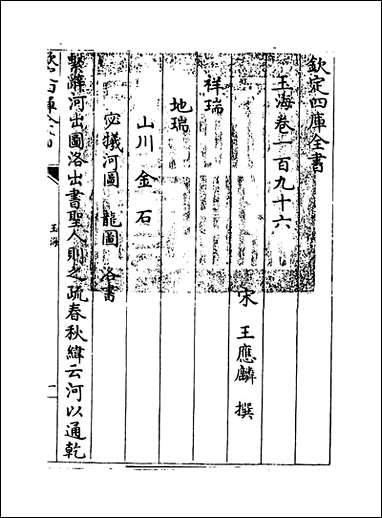 欽定四庫全書
玉海卷一百九十六
宋 王應麟 撰
祥瑞
地瑞
山川 金 石
宓犧河圖 龍圖 洛書
繫辭河出圖洛出書聖人則之疏春秋緯云河以通乾
欽定四庫全書
玉海
一